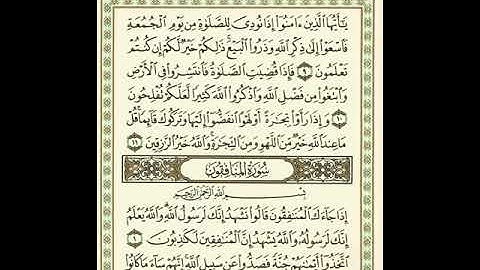 يَٰٓأَيُّهَا ٱلَّذِينَ ءَامَنُوٓا۟ إِذَا نُودِىَ لِلصَّلَوٰةِ مِن يَوْمِ ٱلْجُمُعَةِ
فَٱسْعَوْا۟ إِلَىٰ ذِكْرِ ٱللَّهِ وَذَرُوا۟ ٱلْبَيْعَ ذَٰلِكُمْ خَيْرٌ لَّكُمْ إِن كُنتُمْ
تَعْلَمُونَ ٩ فَإِذَا قُضِيَتِ ٱلصَّلَوٰةُ فَٱنتَشِرُوا۟ فِى ٱلْأَرْضِ
وَٱبْتَغُوا۟ مِن فَضْلِ ٱللَّهِ وَٱذْكُرُوا۟ ٱللَّهَ كَثِيرًا لَّعَلَّكُمْ تُفْلِحُونَ
١٠ وَإِذَا رَأَوْا۟ تِجَٰرَةً أَوْ لَهْوًا ٱنفَضُّوٓا۟ إِلَيْهَا وَتَرَكُوكَ قَآئِمًا قُلْ
مَا عِندَ ٱللَّهِ خَيْرٌ مِّنَ ٱللَّهْوِ وَمِنَ ٱلتِّجَٰرَةِ وَٱللَّهُ خَيْرُ ٱلرَّٰزِقِينَ ١١
سُورَةُ المُنَافِقُونَ
بِسْمِ ٱللَّهِ ٱلرَّحْمَٰنِ ٱلرَّحِيمِ
إِذَا جَآءَكَ ٱلْمُنَٰفِقُونَ قَالُوا۟ نَشْهَدُ إِنَّكَ لَرَسُولُ ٱللَّهِ وَٱللَّهُ يَعْلَمُ
إِنَّكَ لَرَسُولُهُۥ وَٱللَّهُ يَشْهَدُ إِنَّ ٱلْمُنَٰفِقِينَ لَكَٰذِبُونَ ١
ٱتَّخَذُوٓا۟ أَيْمَٰنَهُمْ جُنَّةً فَصَدُّوا۟ عَن سَبِيلِ ٱللَّهِ إِنَّهُمْ سَآءَ مَا كَانُوا۟